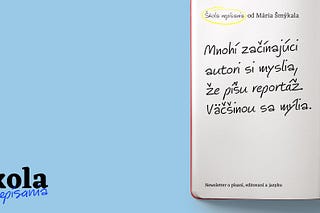 Škola nepísania od Mária Šmýkala
Mnohí začínajúci
autori si myslia,
že píšu reportáž.
Väčšinou sa mýlia.
Newsletter o písaní, editovaní a jazyku
kola
episania